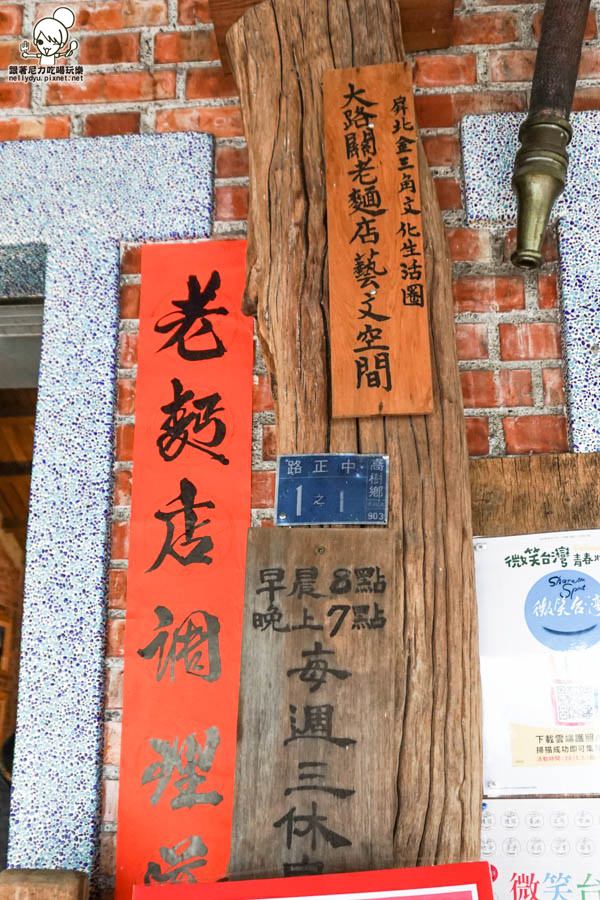 跟著尼力吃喝玩樂
nellydyu.pixnet.net
屏北金三角文化生活圈
大路關老麵店藝文空間
老麵店調理
高樹鄉
中正路
1之1
903
早晨8點
晚上7點
每週三休
微笑台灣 青春
Share Spot
微笑台灣
下載雲端護照
掃描成功即可集
微笑台